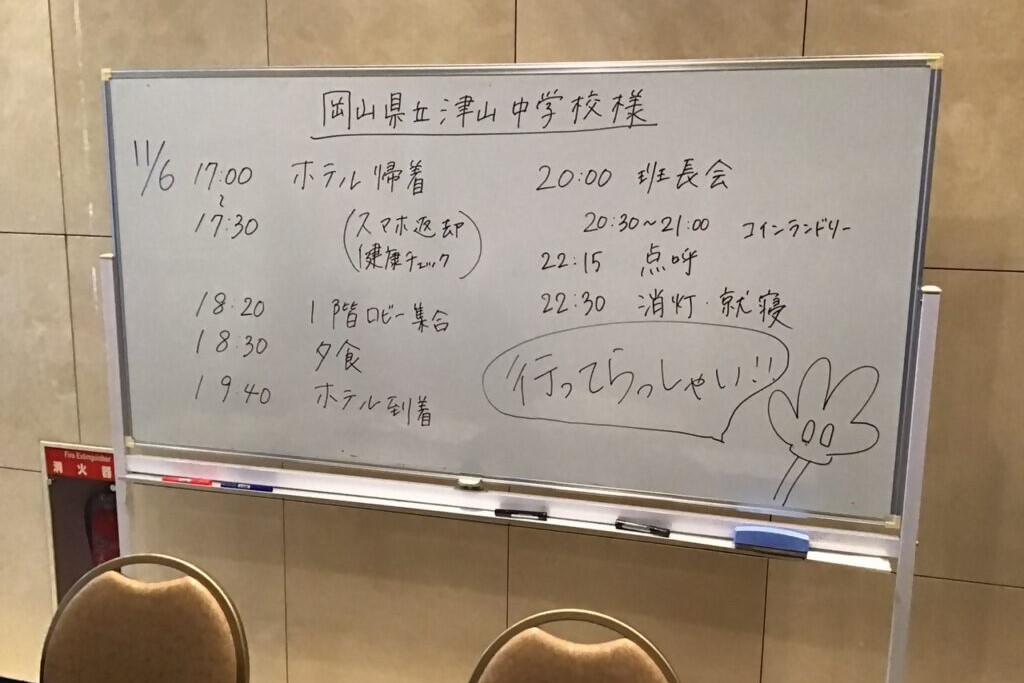 岡山県立津山中学校様
11/6 17:00 ホテル帰着
〜
17:30 (スマホ返却
健康チェック)
18:20 1階ロビー集合
18:30 夕食
19:40 ホテル到着
20:00 班長会
20:30〜21:00 コインランドリー
22:15 点呼
22:30 消灯・就寝
行ってらっしゃい!!
Fire Extinguisher
消火器